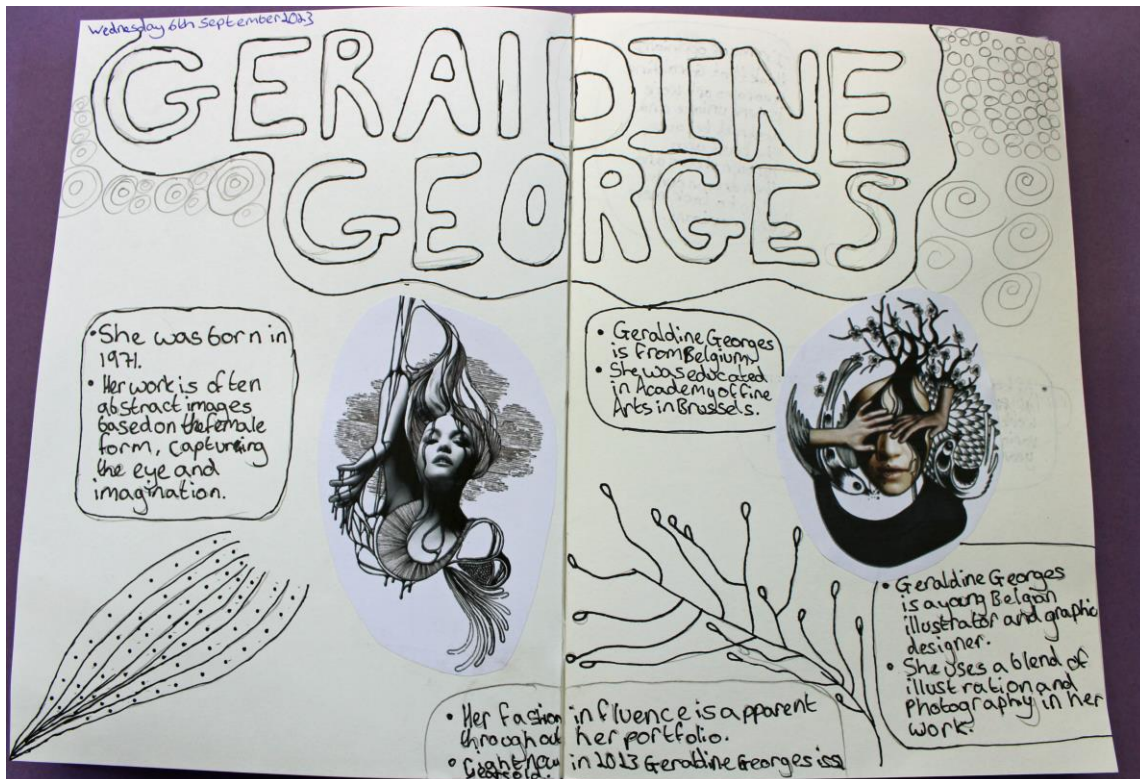 Wednesday 6th September 2023
GERALDINE
GEORGES
• She was born in
1971.
• Her work is often
abstract images
based on the female
form, capturing
the eye and
imagination.
• Geraldine Georges
is from Belgium
• She was educated
in Academy of Fine
Arts in Brussels.
• Geraldine Georges
is a young Belgian
illustrator and graphic
designer.
• She uses a blend of
illustration and
photography in her
work.
• Her fashion influence is apparent
throughout her portfolio.
• Right now in 2023 Geraldine Georges is